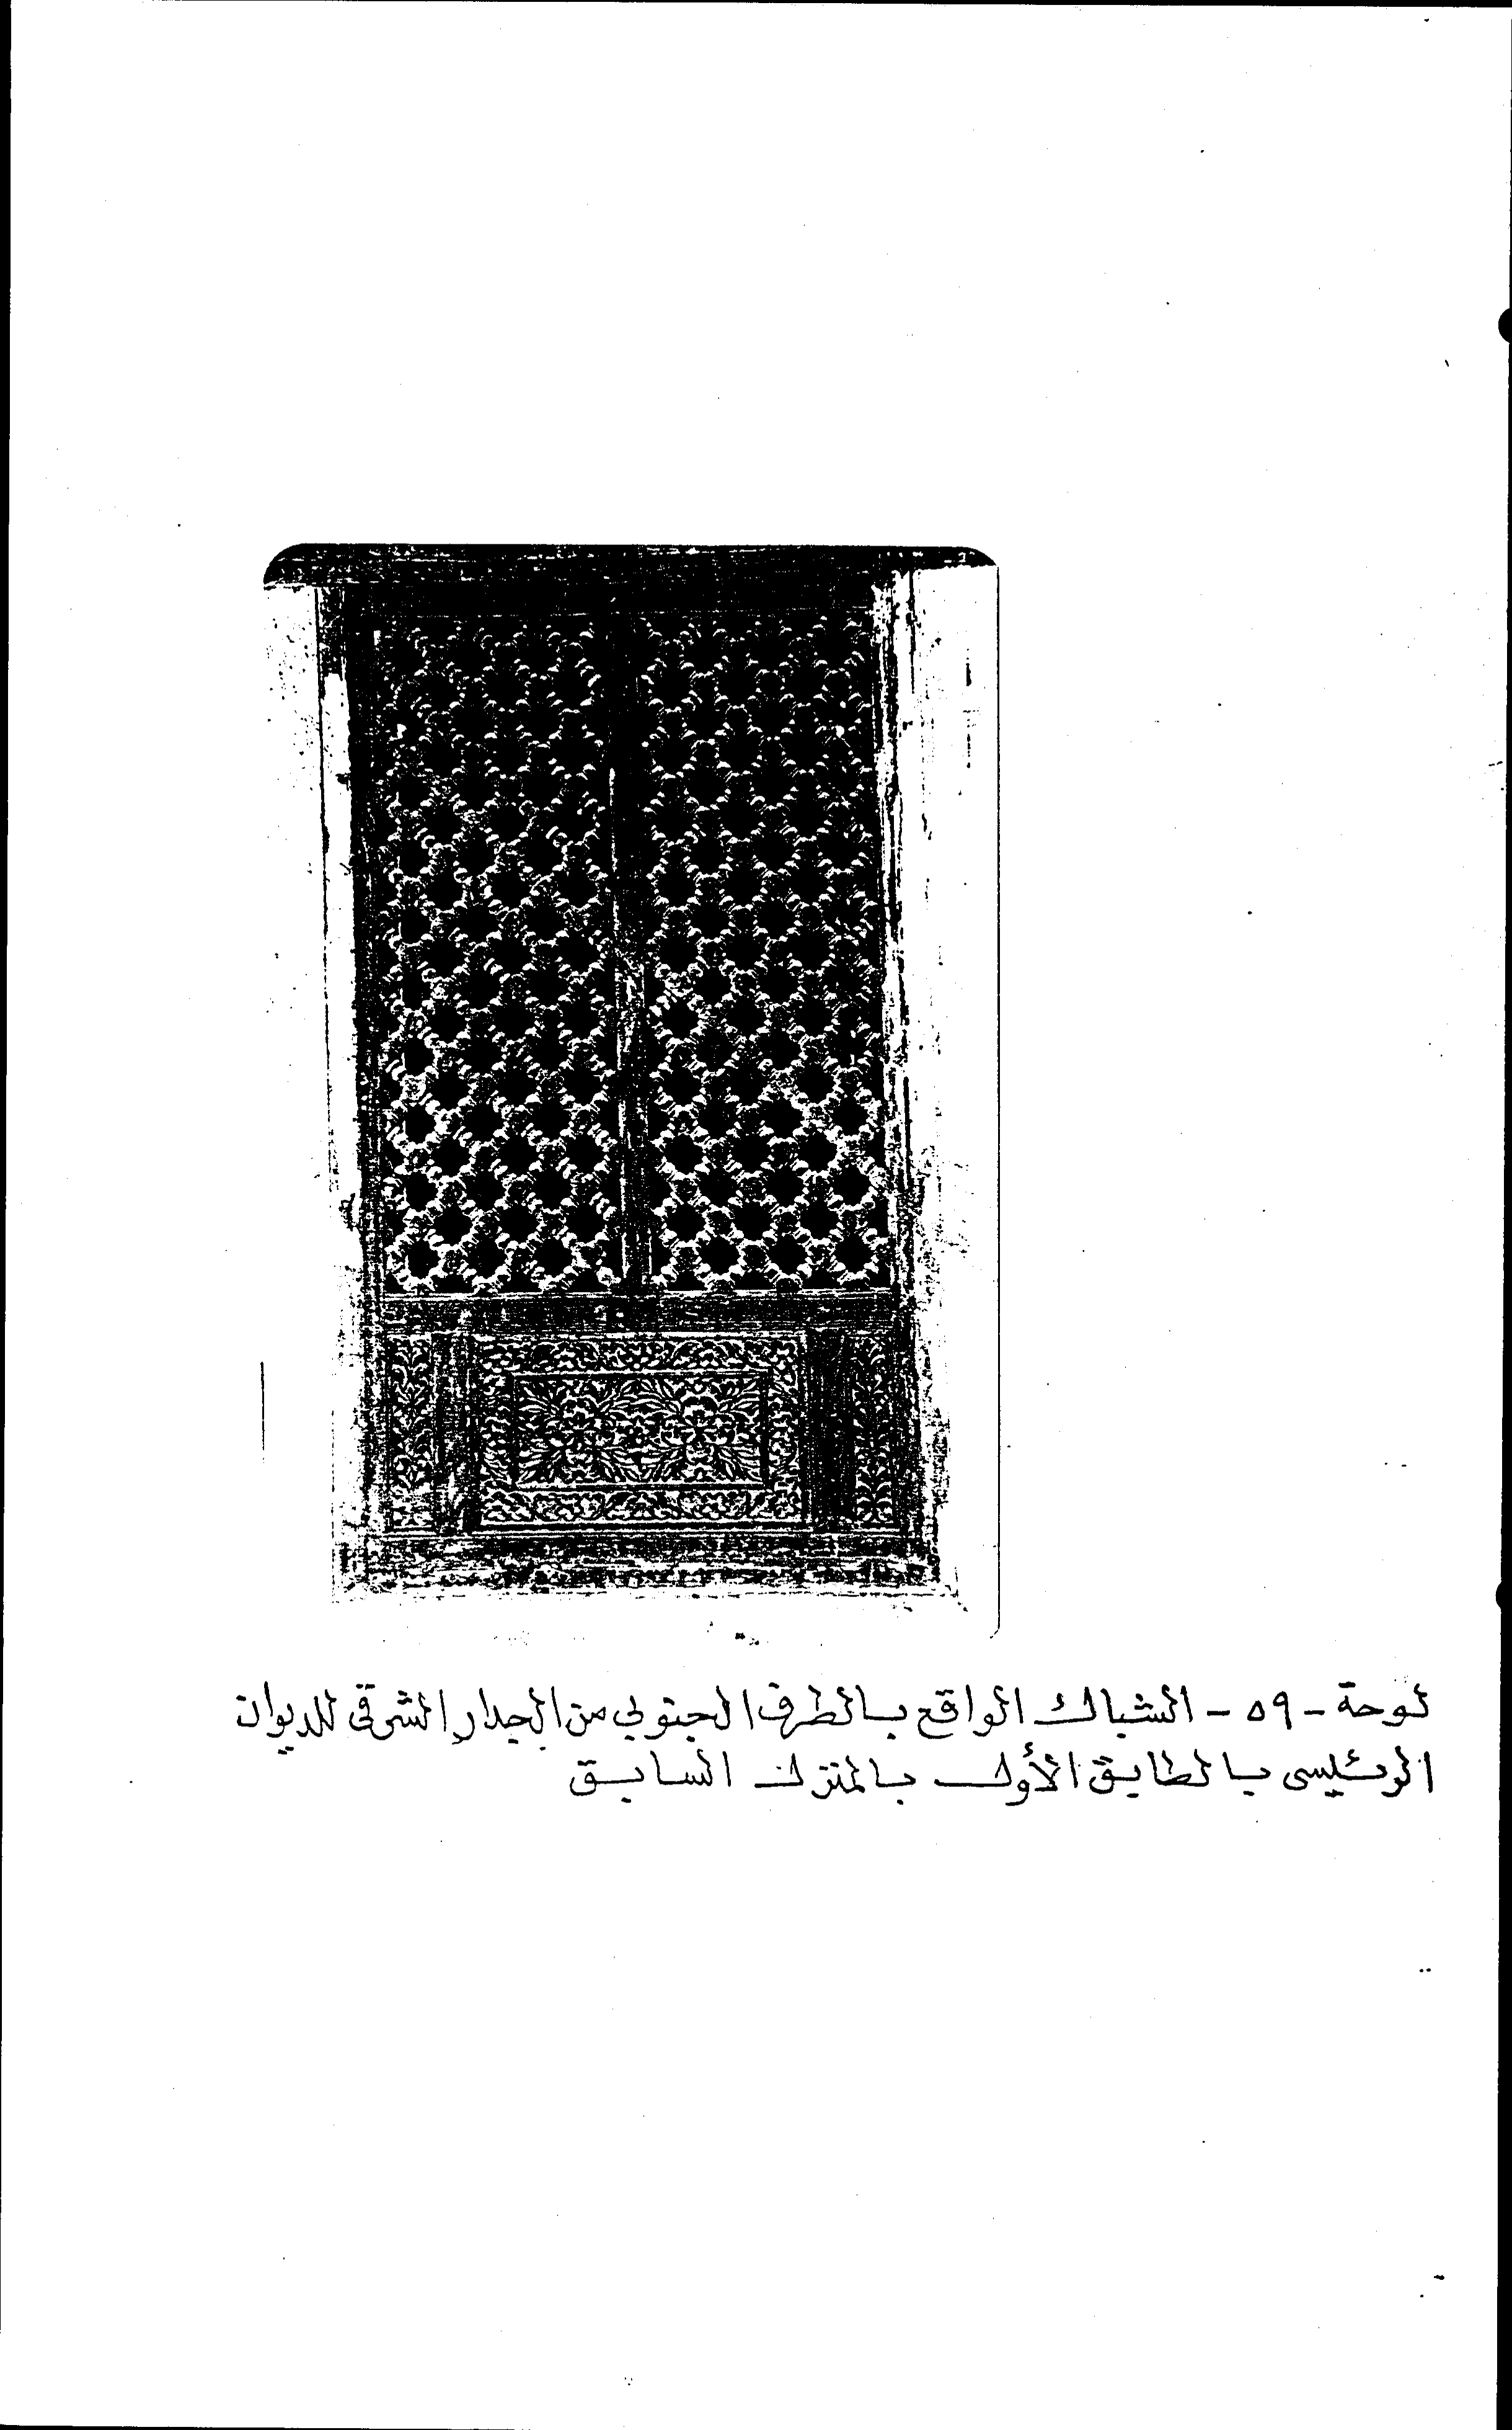 لوحة - ٥٩ - الشباك الواقع بالطرف الجنوبي من الجدار الشرقى للديوان
الرئيسى بالطابق الأول بالمنزل السابق